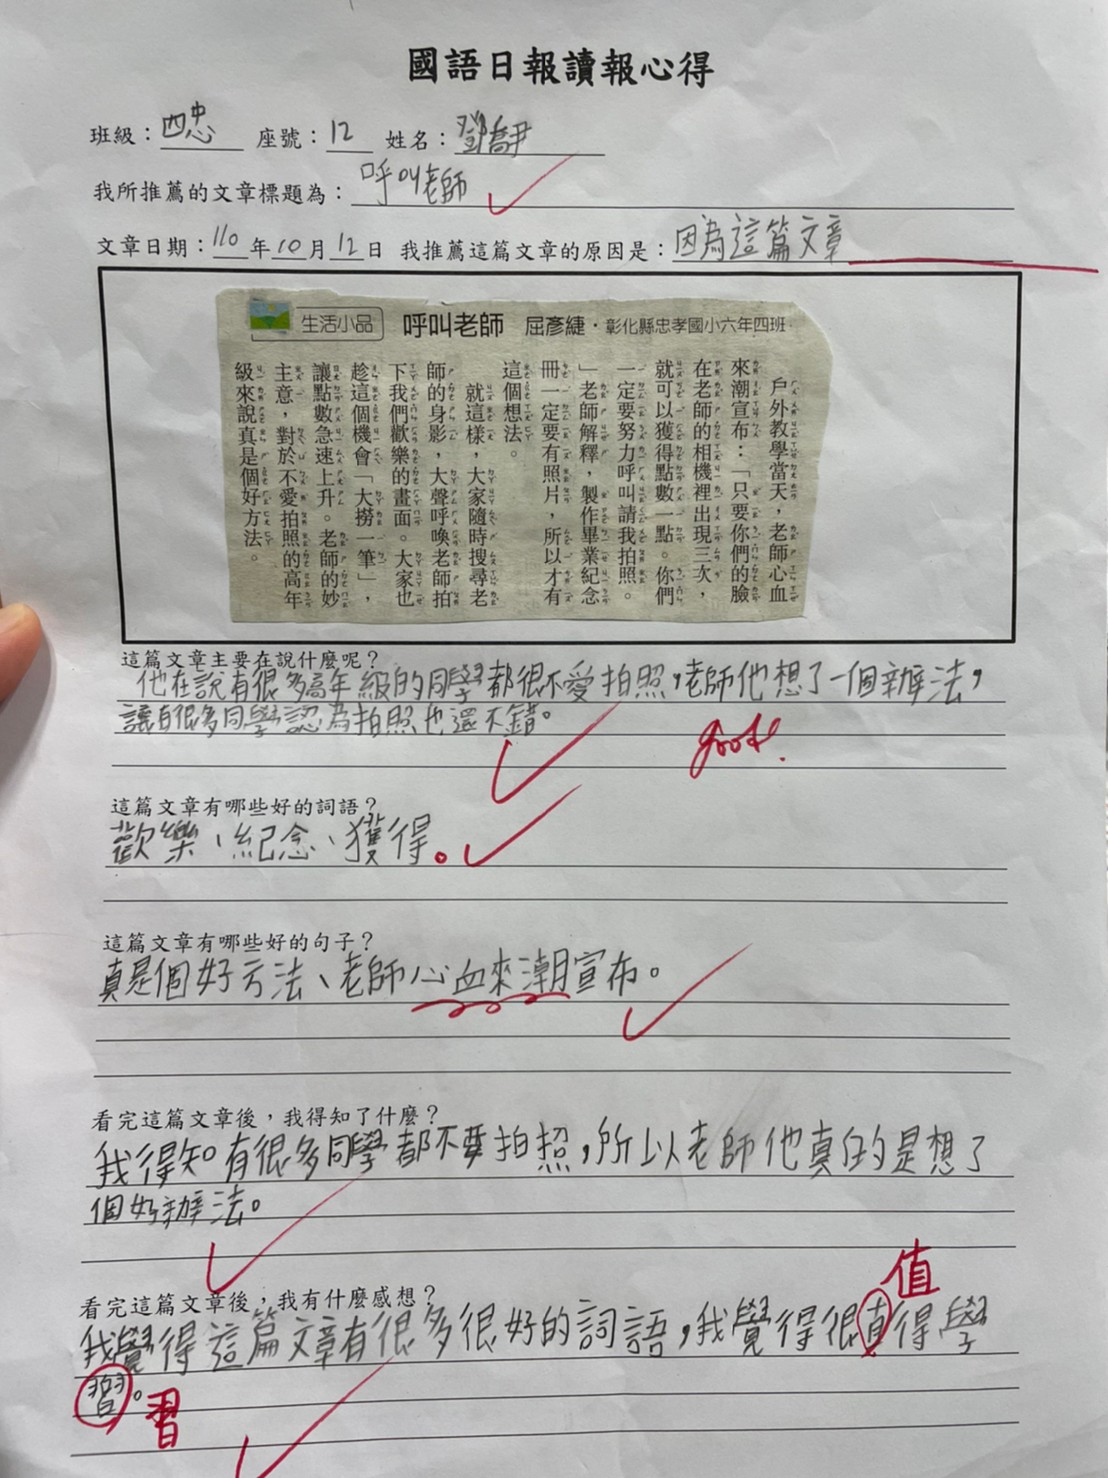 國語日報讀報心得
班級：四忠 座號：12 姓名：鄧喬尹
我所推薦的文章標題為：呼叫老師
文章日期：110年10月12日 我推薦這篇文章的原因是：因為這篇文章
生活小品 呼叫老師 屈彥緁・彰化縣忠孝國小六年四班
戶外教學當天，老師心血
來潮宣布：「只要你們的臉
在老師的相機裡出現三次，
就可以獲得點數一點。你們
一定要努力呼叫請我拍照。
」老師解釋，製作畢業紀念
冊一定要有照片，所以才有
這個想法。
就這樣，大家隨時搜尋老
師的身影，大聲呼喚老師拍
下我們歡樂的畫面。大家也
趁這個機會「大撈一筆」，
讓點數急速上升。老師的妙
主意，對於不愛拍照的高年
級來說真是個好方法。
這篇文章主要在說什麼呢？
他在說有很多高年級的同學都很不愛拍照，老師他想了一個辦法，
讓有很多同學認為拍照也還不錯。
good!
這篇文章有哪些好的詞語？
歡樂、紀念、獲得。
這篇文章有哪些好的句子？
真是個好方法、老師心血來潮宣布。
看完這篇文章後，我得知了什麼？
我得知有很多同學都不要拍照，所以老師他真的是想了
個好辦法。
看完這篇文章後，我有什麼感想？
值
我覺得這篇文章有很多很好的詞語，我覺得很直得學
習。
習